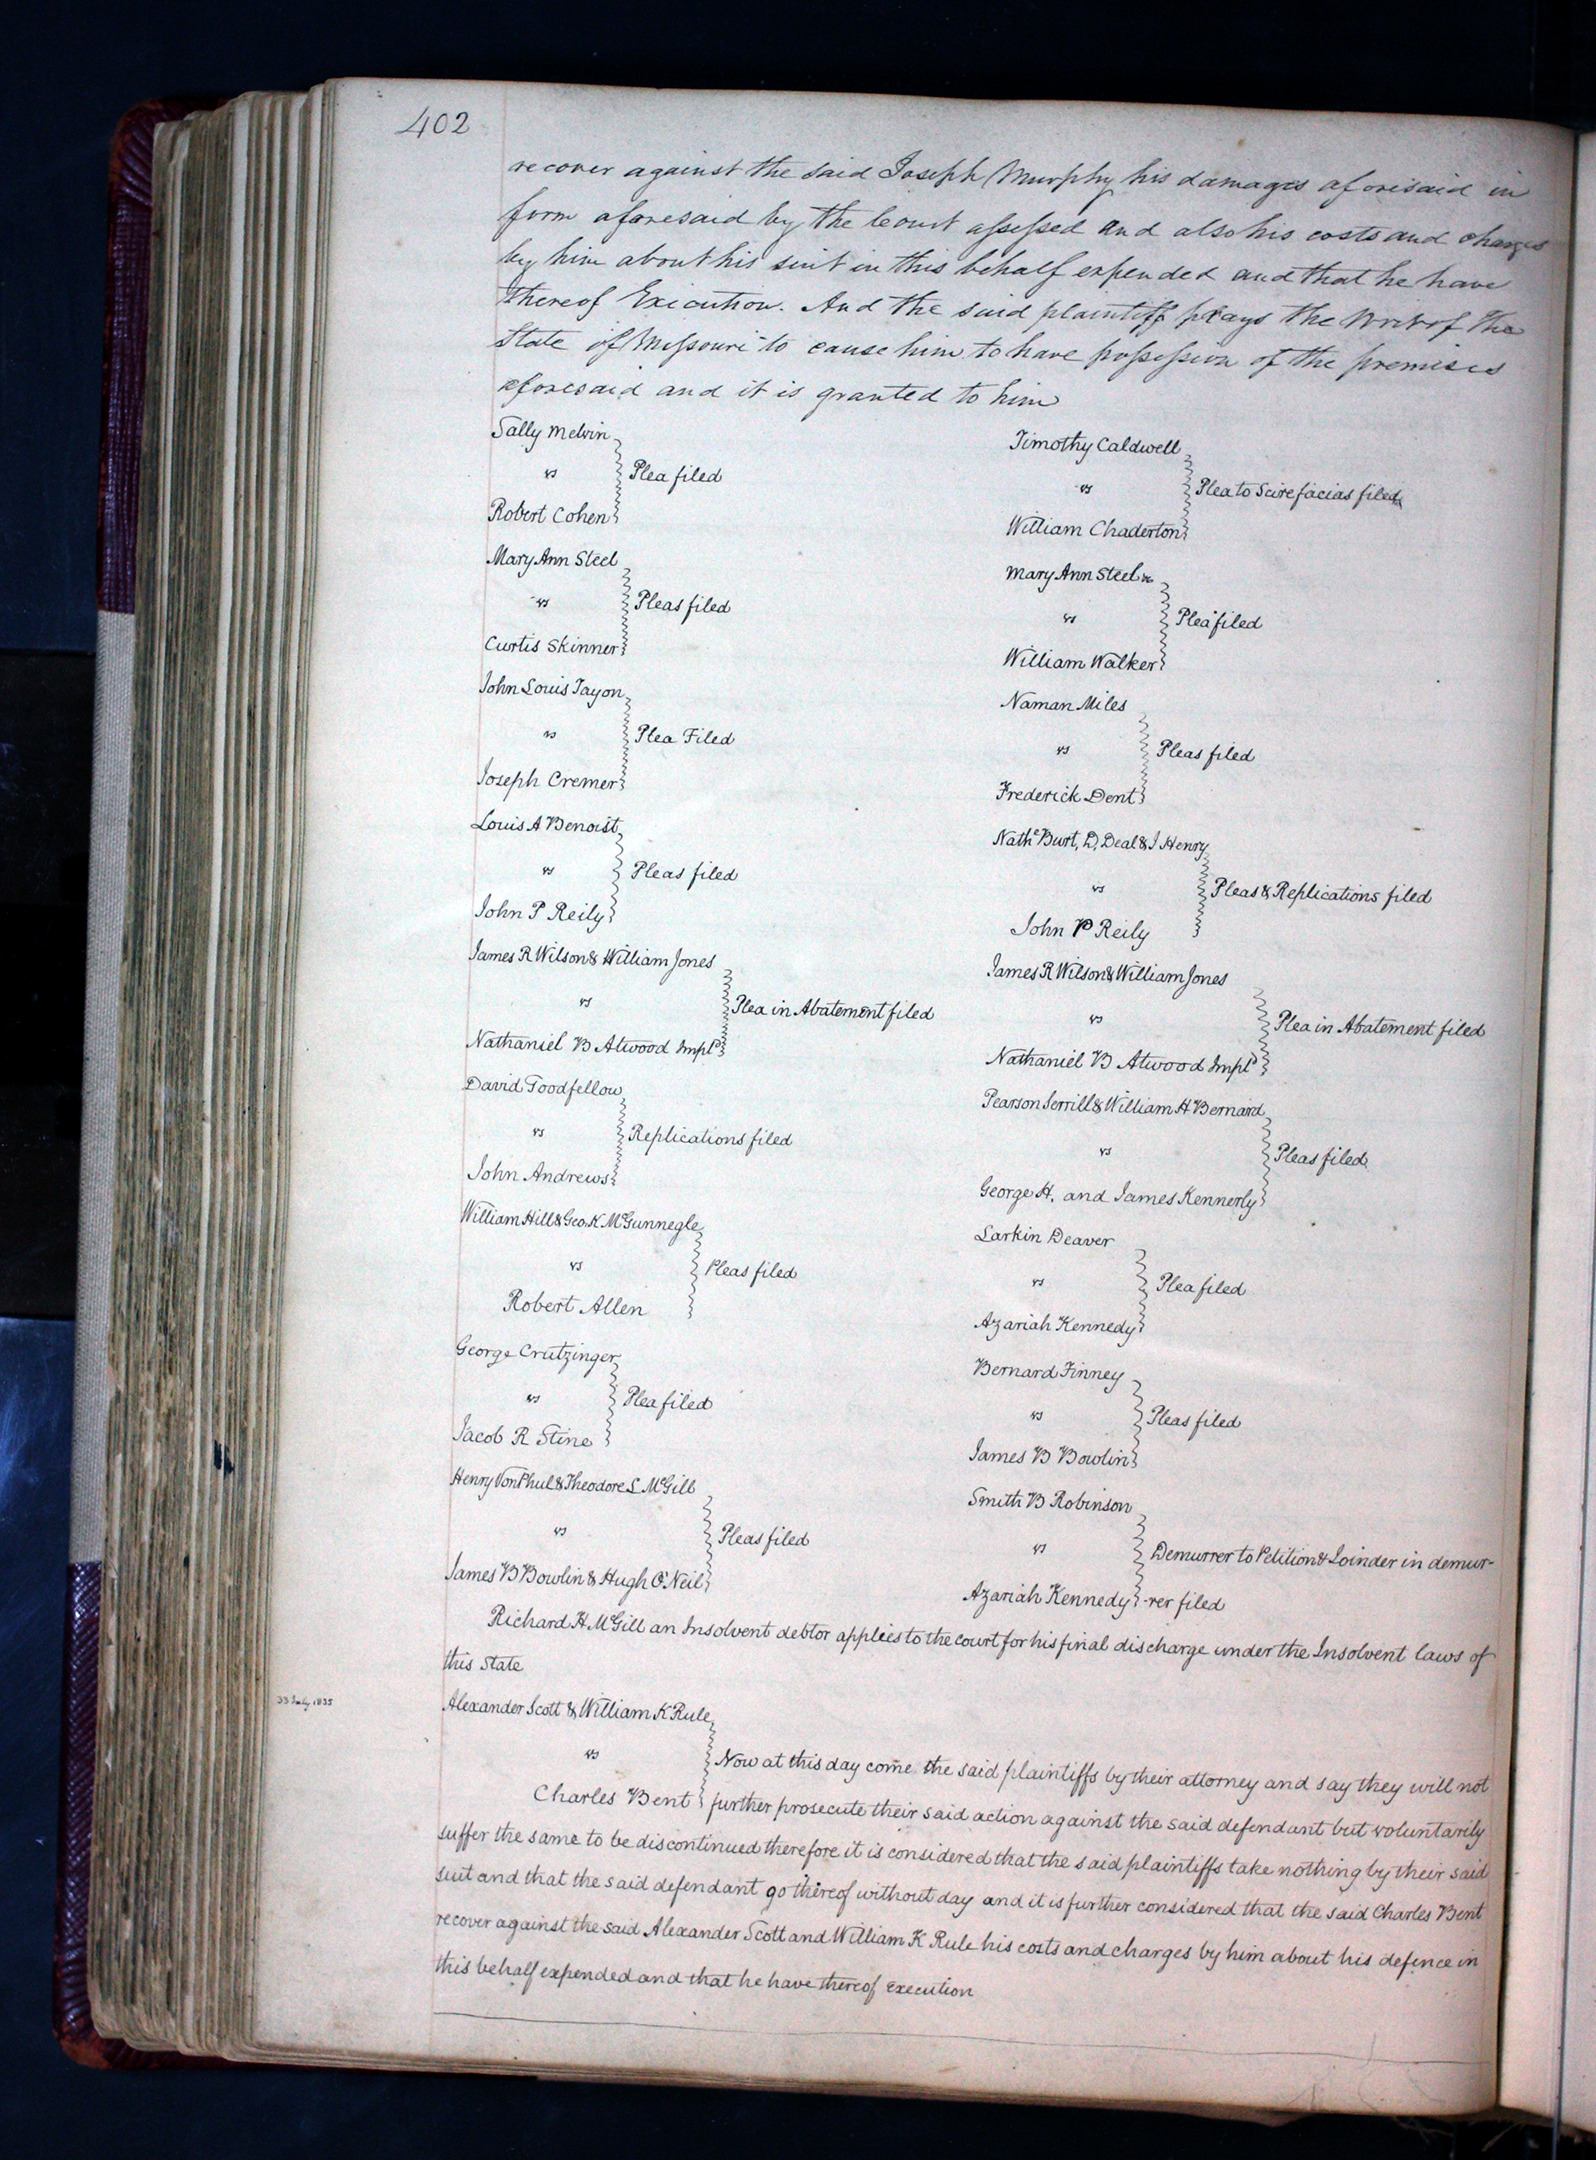 402
recover against the said Joseph Murphy his damages aforesaid in
form aforesaid by the Court assessed and also his costs and charges
by him about his suit in this behalf expended and that he have
thereof Execution. And the said plaintiff prays the Writ of the
State of Missouri to cause him to have possession of the premises
aforesaid and it is granted to him
Sally Melvin
vs
Plea filed
Robert Cohen
Timothy Caldwell
vs
Plea to Scire facias filed
William Chaderton
Mary Ann Steel
vs
Pleas filed
Curtis Skinner
Mary Ann Steel
vs
Plea filed
William Walker
John Louis Tayon
vs
Plea Filed
Joseph Cremer
Naman Miles
vs
Pleas filed
Frederick Dent
Louis A Benoist
vs
Pleas filed
John P Reily
Nathe Burt, D, Deal & J Henry
vs
Pleas & Replications filed
John P Reily
James R Wilson & William Jones
vs
Plea in Abatement filed
Nathaniel B Atwood Impld
James R Wilson & William Jones
vs
Plea in Abatement filed
Nathaniel B Atwood Impld
David Goodfellow
vs
Replications filed
John Andrews
Pearson Serrill & William H Bernard
vs
Pleas filed
George H. and James Kennerly
William Hill & Geo. K McGunnegle
vs
Pleas filed
Robert Allen
Larkin Deaver
vs
Plea filed
Azariah Kennedy
George Crutzinger
vs
Plea filed
Jacob R Stine
Bernard Finney
vs
Pleas filed
James B Bowlin
Henry Von Phul & Theodore L McGill
vs
Pleas filed
James B Bowlin & Hugh O'Neil
Smith B Robinson
vs
Demurrer to Petition & Joinder in demur-
Azariah Kennedy -rer filed
Richard H. McGill an Insolvent debtor applies to the court for his final discharge under the Insolvent laws of
this State
Alexander Scott & William K Rule
vs
Now at this day come the said plaintiffs by their attorney and say they will not
Charles Bent further prosecute their said action against the said defendant but voluntarily
suffer the same to be discontinued therefore it is considered that the said plaintiffs take nothing by their said
suit and that the said defendant go thereof without day and it is further considered that the said Charles Bent
recover against the said Alexander Scott and William K Rule his costs and charges by him about his defence in
this behalf expended and that he have thereof Execution